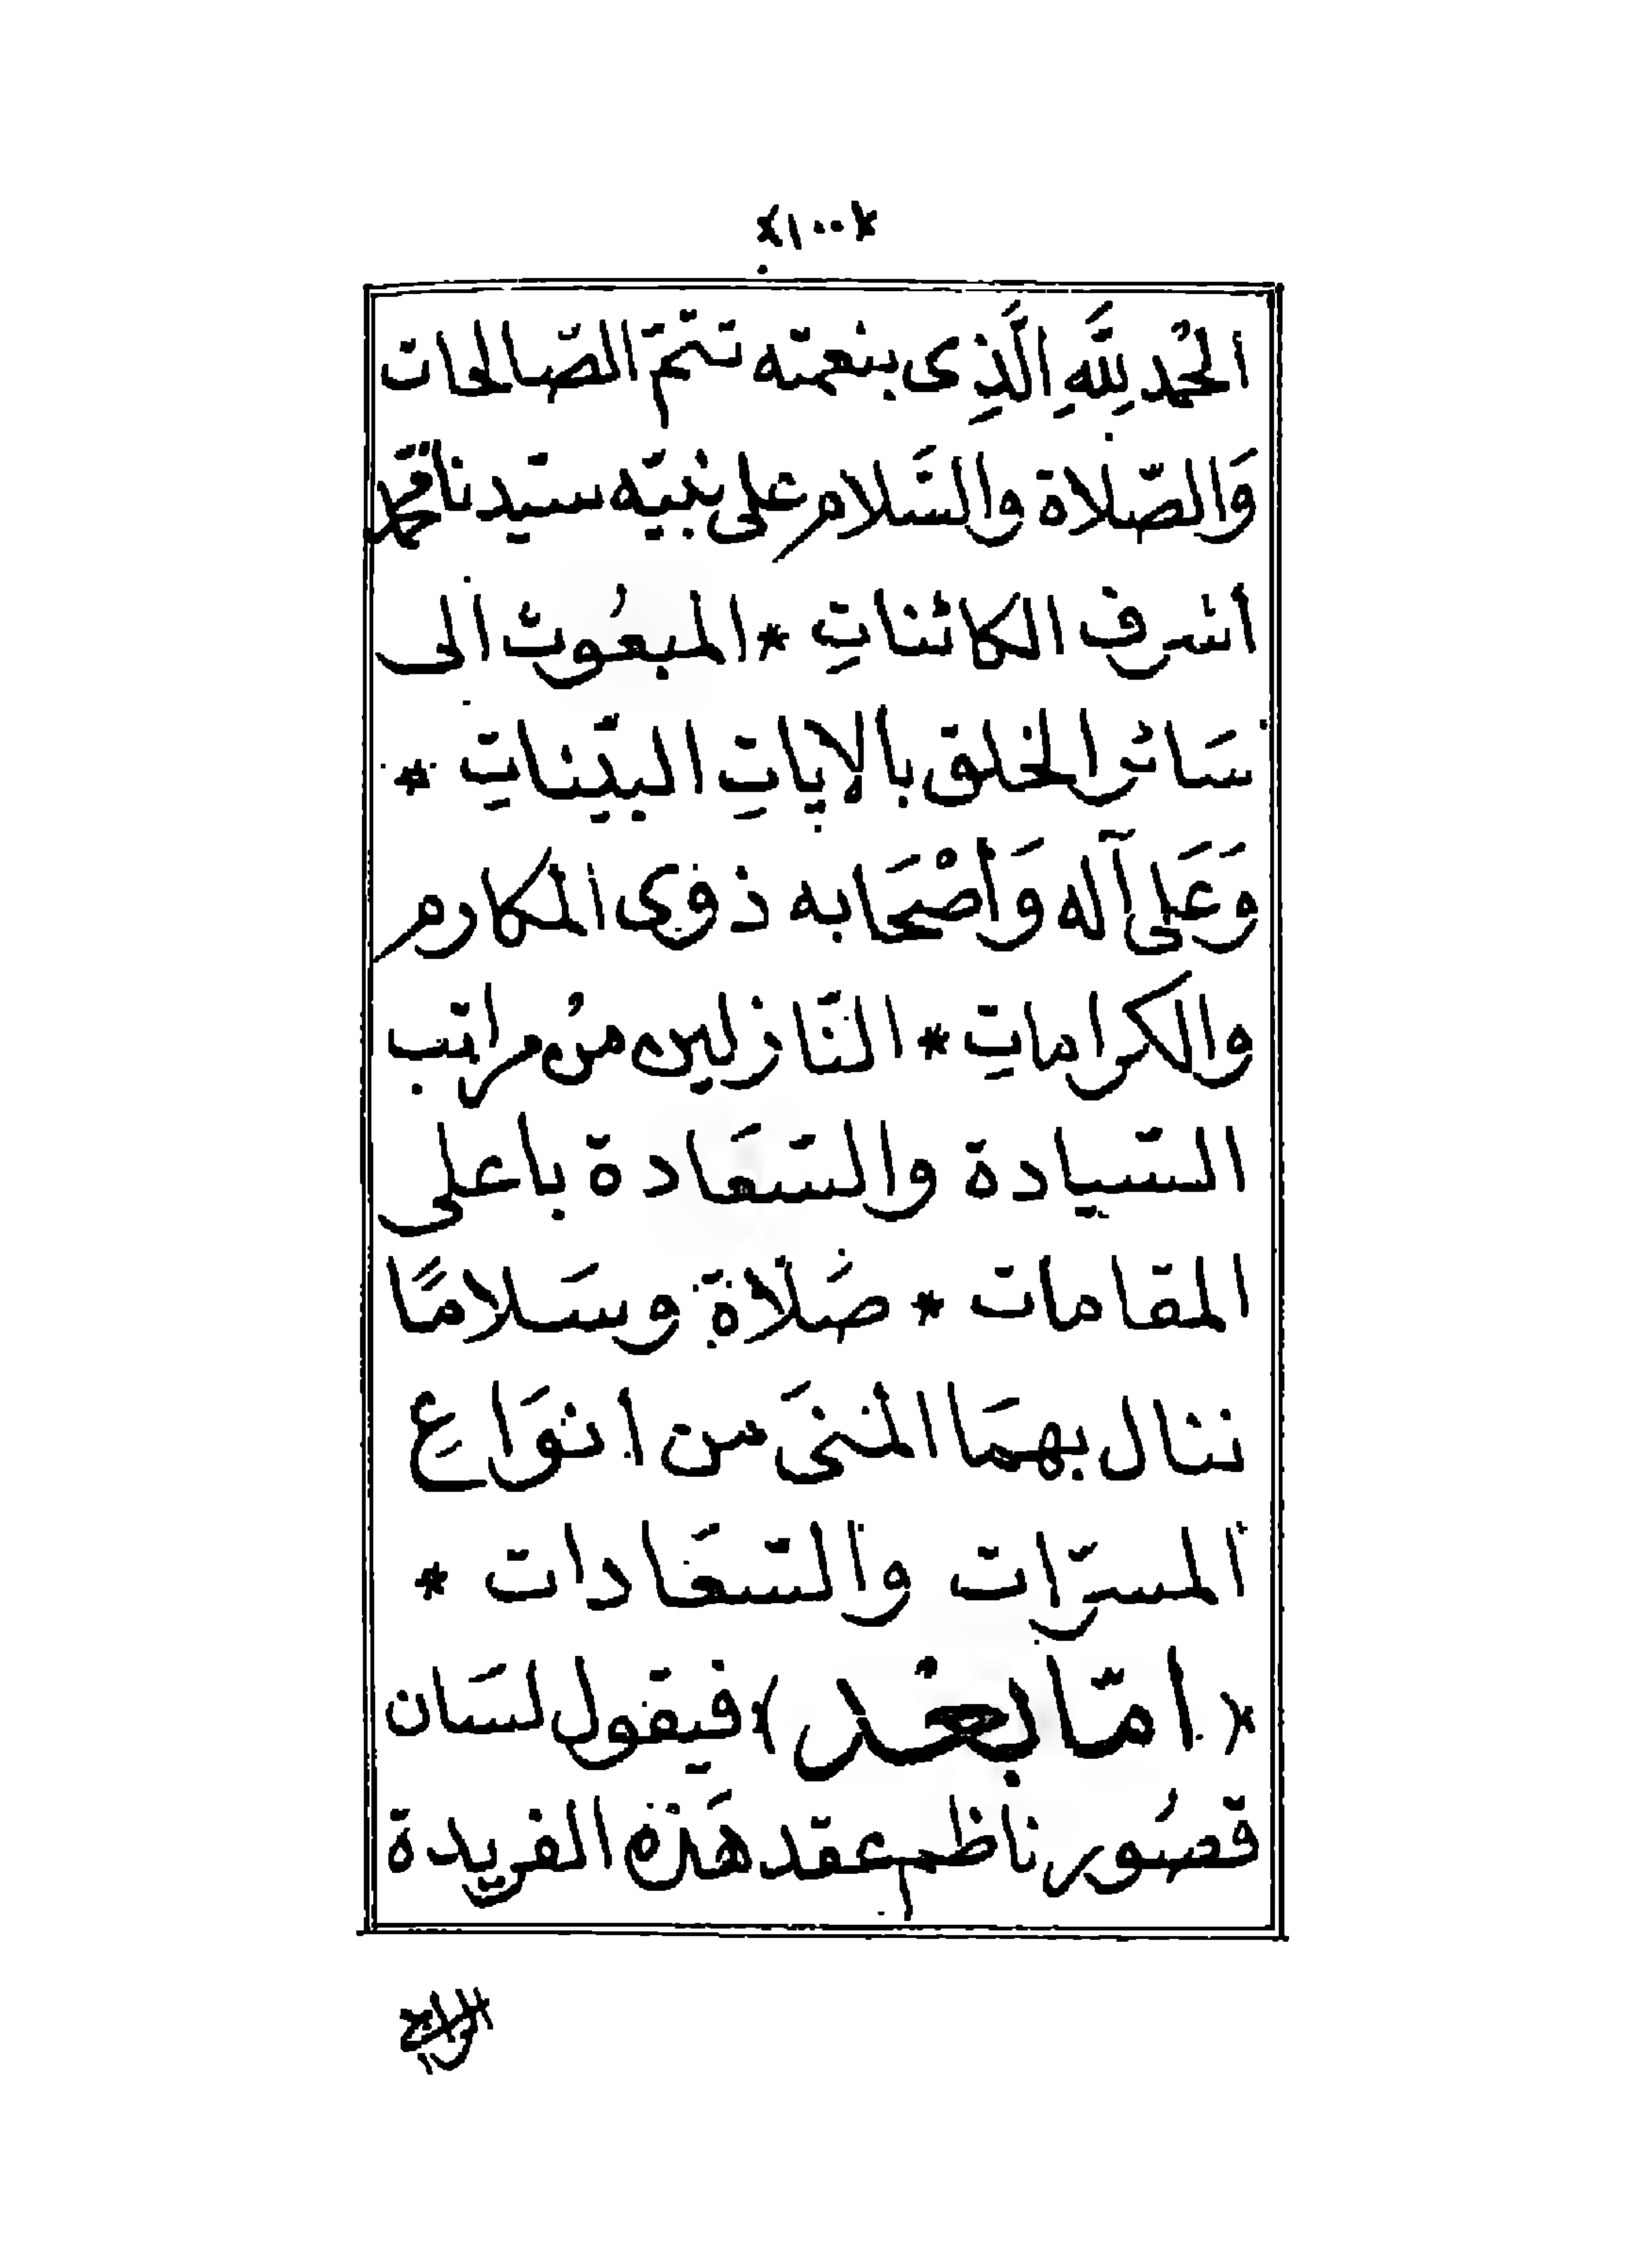 ﴿١٠٠﴾
الحمد لِلَّهِ الَّذِى بنعمته تتمّ الصّالحات
وَالصّلاة والسَّلام على نبيّه سيّدنا محمّد
اشرف الكائناتِ * المبعُوث الى
سَائر الخلق بالاياتِ البيّناتِ *
وَعَلى آله وَاَصْحَابه ذوى المكارم
والكراماتِ * النَّازلين منْ مراتب
السّيادة والسّعَادة باعلى
المقامات * صَلَاة وسَلامًا
ننال بهمَا المنىَ من انوَاعِ
المسرّات والسّعَادات *
﴿ امّا بعْد ﴾ فيقول لسَان
قصُور ناظم عقد هَذه الفريدة